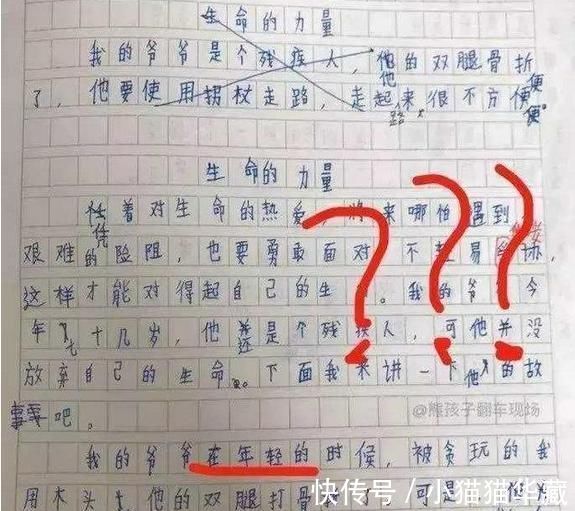 生命的力量
我的爷爷是个残疾人，他的双腿骨折
了，他要使用拐杖走路，走起来很不方便。
路 便
生命的力量
凭着对生命的热爱，将来哪怕遇到
艰难的险阻，也要勇敢面对，不轻易妥协，
这样才能对得起自己的生。我的爷今
年七十几岁，他还是个残疾人，可他并没
放弃自己的生命。下面我来讲一下他的故
事吧。
@熊孩子翻车现场
我的爷爷在年轻的时候，被贪玩的我
用木头 他的双腿打骨 了，可是
快传号/小猫猫华藏